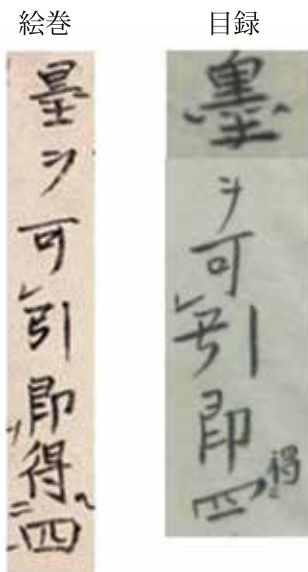 絵巻
墨ヲ可レ引即得四
目録
墨ヲ可レ引即得四